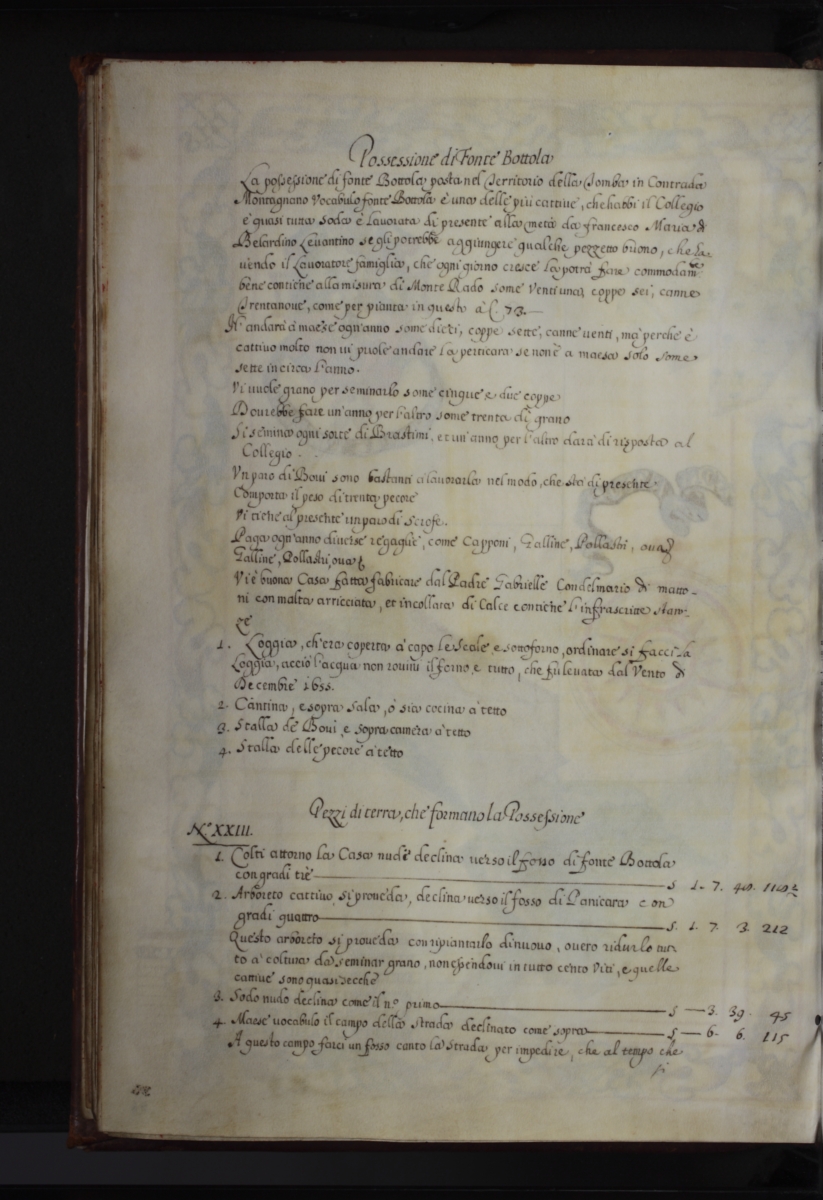 Possessione di Fonte Bottola
La possessione di fonte Bottola posta nel Territorio della Tomba in Contrada
Montagnano Vocabulo fonte Bottola è una delle più cattive, che habbi il Collegio
è quasi tutta soda è lavorata di presente alla metà da francesco Maria di
Belardino Levantino se gli potrebbe aggiungere qualche pezzetto buono, che ha-
vendo il Lavoratore famiglia, che ogni giorno cresce la potrà fare commodam.te
bene contiene alla misura di Monte Rado some Venti una, coppe sei, canne
Trentanove, come per pianta in questo à C. 73.
N'andarà à maese ogn'anno some dieci, coppe sette, canne venti, mà perche è
cattivo molto non vi puole andare la perticara se non è a maese solo some
sette in circa l'anno.
Vi vuole grano per seminarlo some cinque e due coppe
Dourebbe fare un'anno per l'altro some trenta di grano
Si semina ogni sorte di Brastimi, et un'anno per l'altro darà di risposta al
Collegio . .
Un paro di Bovi sono bastanti à lavorarla nel modo, che stà di presente
Comporta il peso di trenta pecore
Vi tiene al presente un paro di scrofe.
Paga ogn'anno diverse regaglie, come Capponi, Galline, Pollastri, ova
Galline, Pollastri, ova
Vi è buona Casa fatta fabricare dal Padre Gabrielle Condelmario di matto-
ni con malta arricciata, et incollata di Calce contiene l'infrascritte stan-
ze
1. Loggia, ch'era coperta à capo le Scale, e sottoforno, ordinare si facci la
Loggia, acciò l'acqua non rovini il forno e tutto, che fù levata dal Vento di
Decembre 1655.
2. Cantina, e sopra Sala, ò sia cocina à tetto
3. Stalla de Bovi, e sopra camera à tetto
4. Stalla delle pecore à tetto
Pezzi di terra, che formano la Possessione
N.o XXIII.
1. Colti attorno la Casa nudi declina verso il fosso di fonte Bottola
con gradi trè S 1. 7. 40.
2. Arboreto cattivo, si proveda, declina verso il fosso di Panicara con
gradi quattro S. 1. 7. 3. 212
Questo arboreto si proveda con ripiantarlo di nuovo, overo ridurlo tut-
to à coltura da seminar grano, non essendovi in tutto cento Viti, e quelle
cattive sono quasi secche
3. Sodo nudo declina come il n.o primo S — 3. 39. 45
4. Maese vocabulo il campo della Strada declinato come sopra S — 6. 6. 115
A questo campo farci un fosso canto la Strada per impedire, che al tempo che
si